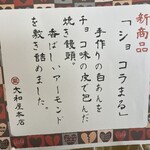 新商品
「ショコラまる」
手作りの白あんを
チョコ味の皮で包んだ
焼き饅頭。
香ばしいアーモンド
を敷き詰めました。
大和屋本店